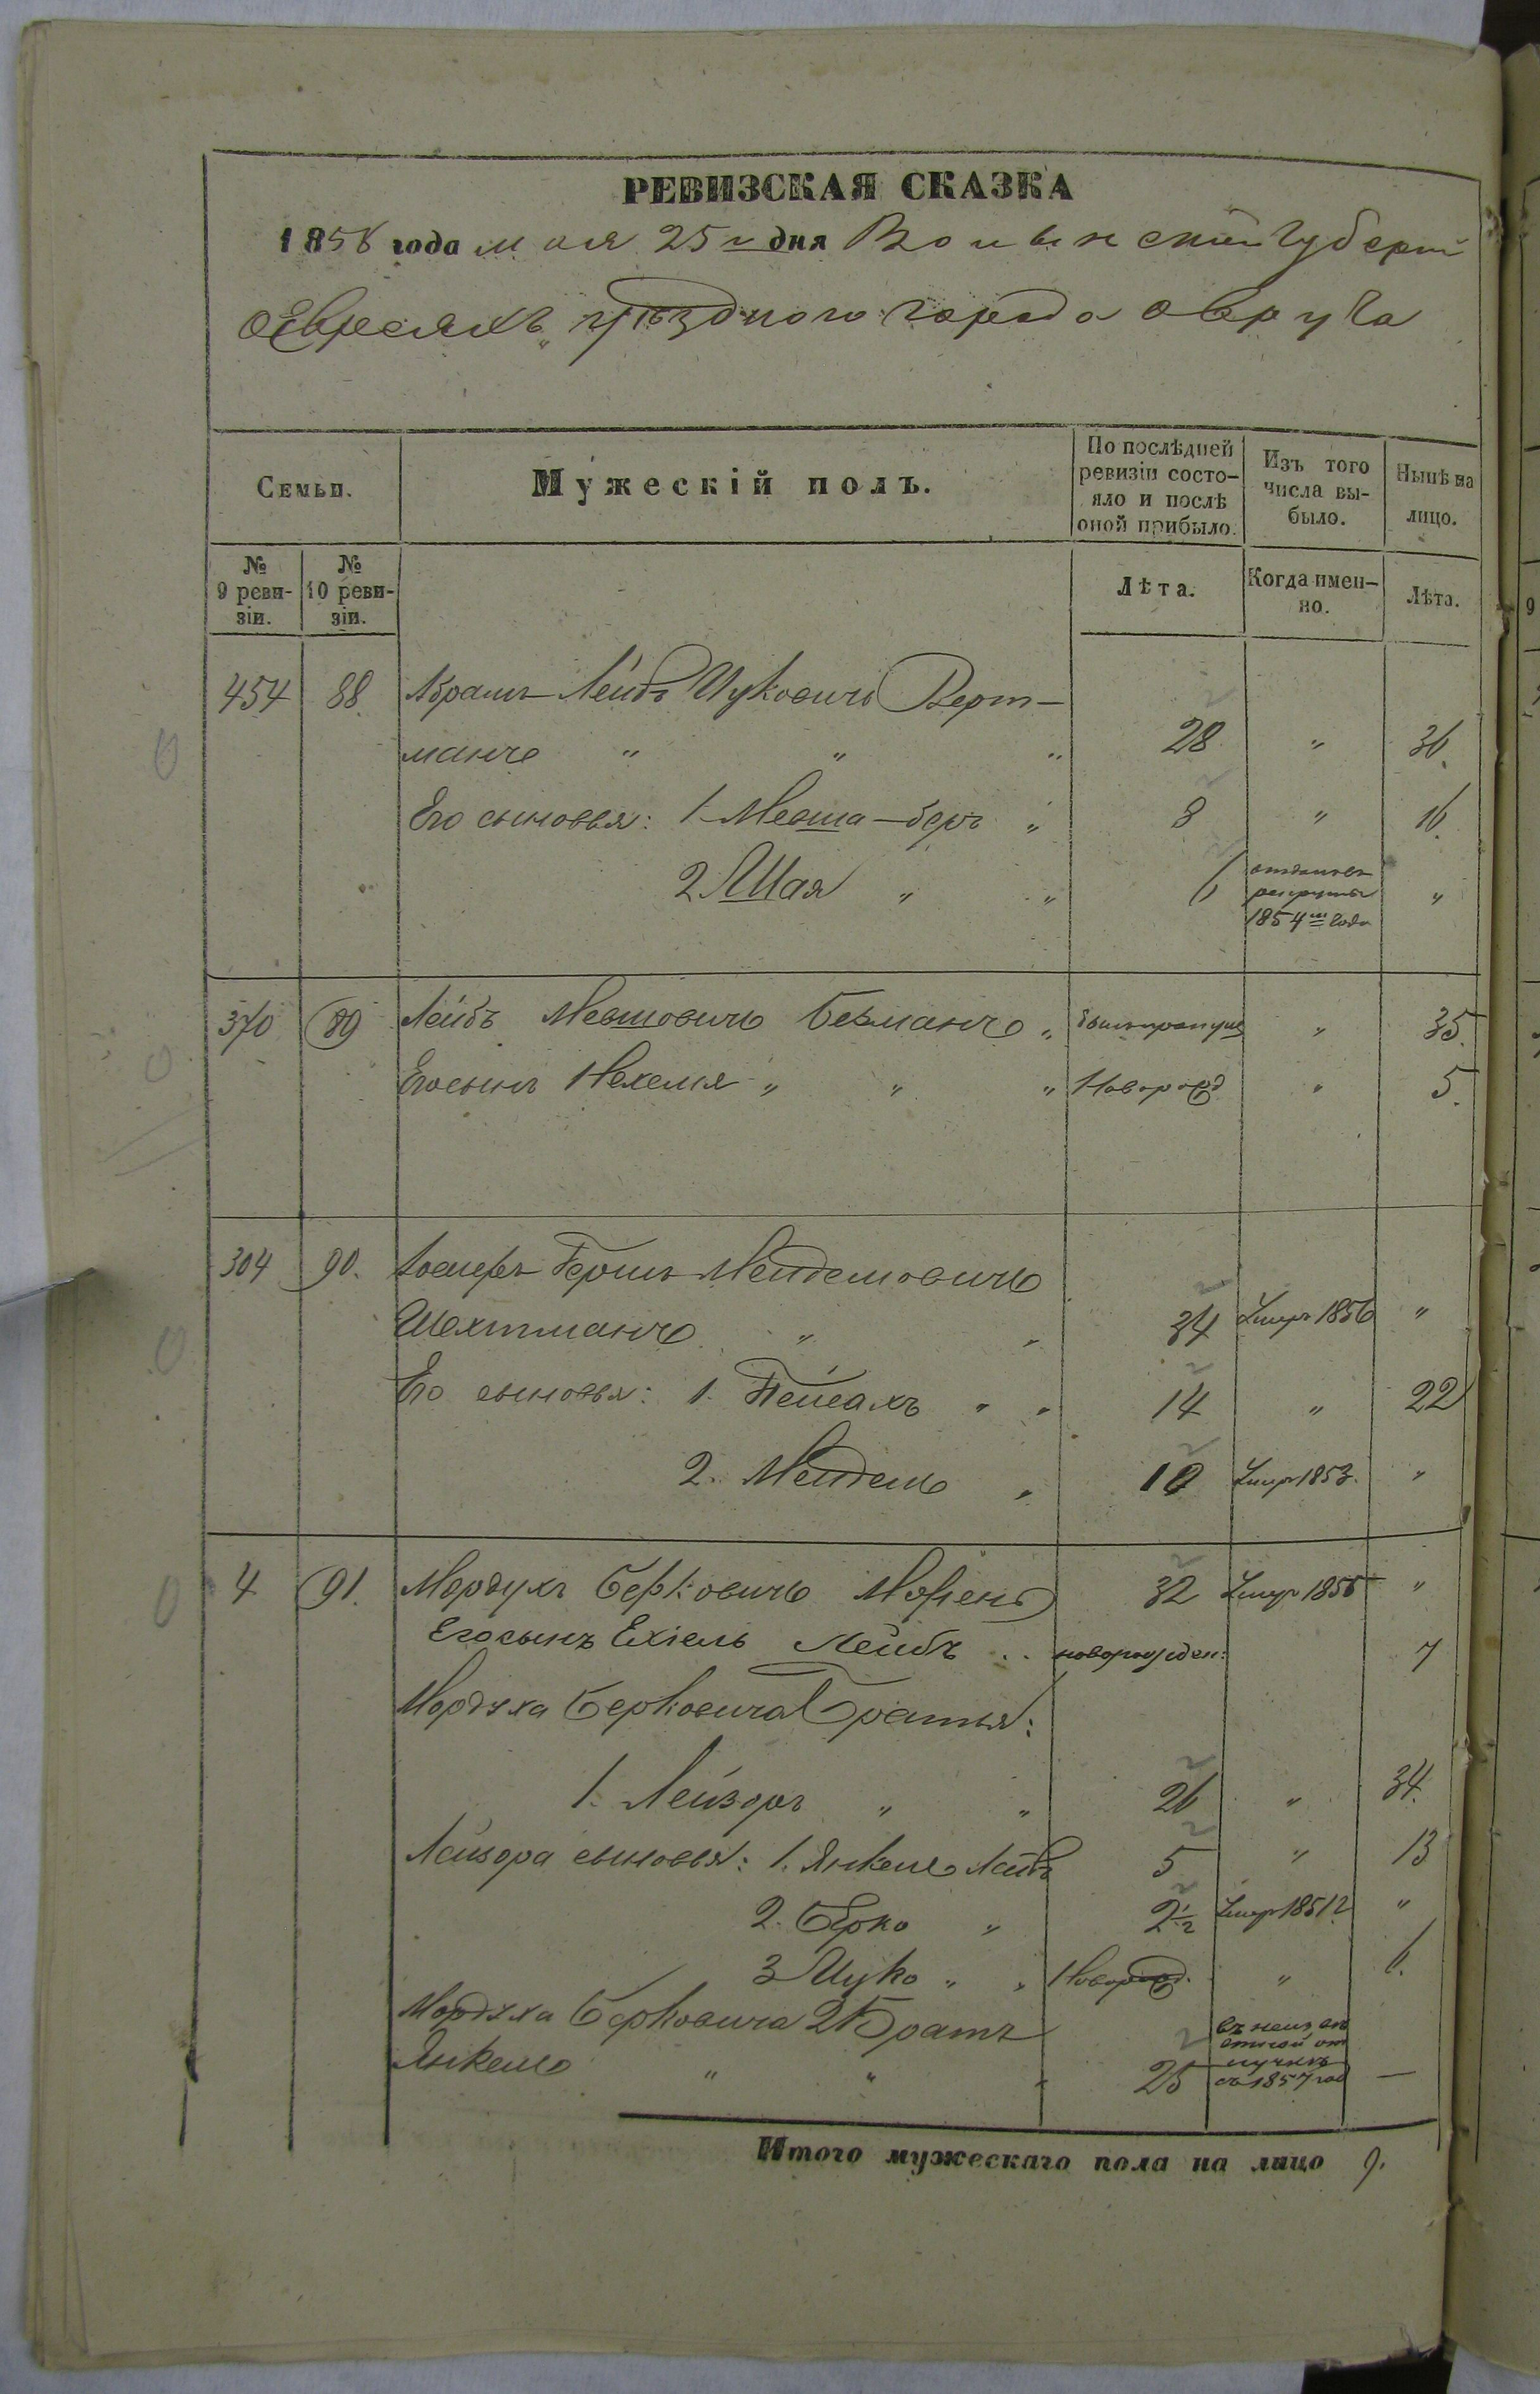 РЕВИЗСКАЯ СКАЗКА
1858 года мая 25 дня Волынской Губерніи
о Евреяхъ уѣзднаго города Овруча
Семьи.
Мужескій полъ.
По послѣдней ревизіи состо-яло и послѣ оной прибыло.
Изъ того числа вы-было.
Нынѣ на лицо.
№ 9 реви-зіи.
№ 10 реви-зіи.
Лѣта.
Когда имен-но.
Лѣта.
454 88 Абрамъ Лейбъ Ицковичъ Верт-
манъ " " " 28 " 36.
Его сыновья: 1. Мовша-беръ " 8 " 16.
2. Шая " " 6 отданъ въ рекруты 1854 го года "
370 89 Лейбъ Мовшовичъ " " 35.
Его сынъ Нехемія " " " Новорожд " 5.
304 90. Іосифъ Гершъ Менделовичъ
Шехтманъ " " 34 Умеръ 1856 "
Его сыновья: 1. Пейсахъ " " 14 " 22
2. Мендель " 10 Умеръ 1853. "
4 91. Мордухъ Берковичъ 32 Умеръ 1855 "
Его сынъ Ехіель Лейбъ .. новорожден: 7
Мордуха Берковича Братья:
1. Лейзоръ " " 26 " 34.
Лейзора сыновья: 1. Янкель Лейбъ 5 " 13
2. Берко " 2½ Умеръ 1851 "
3 Ицко " " Новорожд. " 6.
Мордуха Берковича 2 Братъ
Янкель " " " 25 въ неизвѣстной отлучкѣ съ 1857 год —
Итого мужескаго пола на лицо 9.